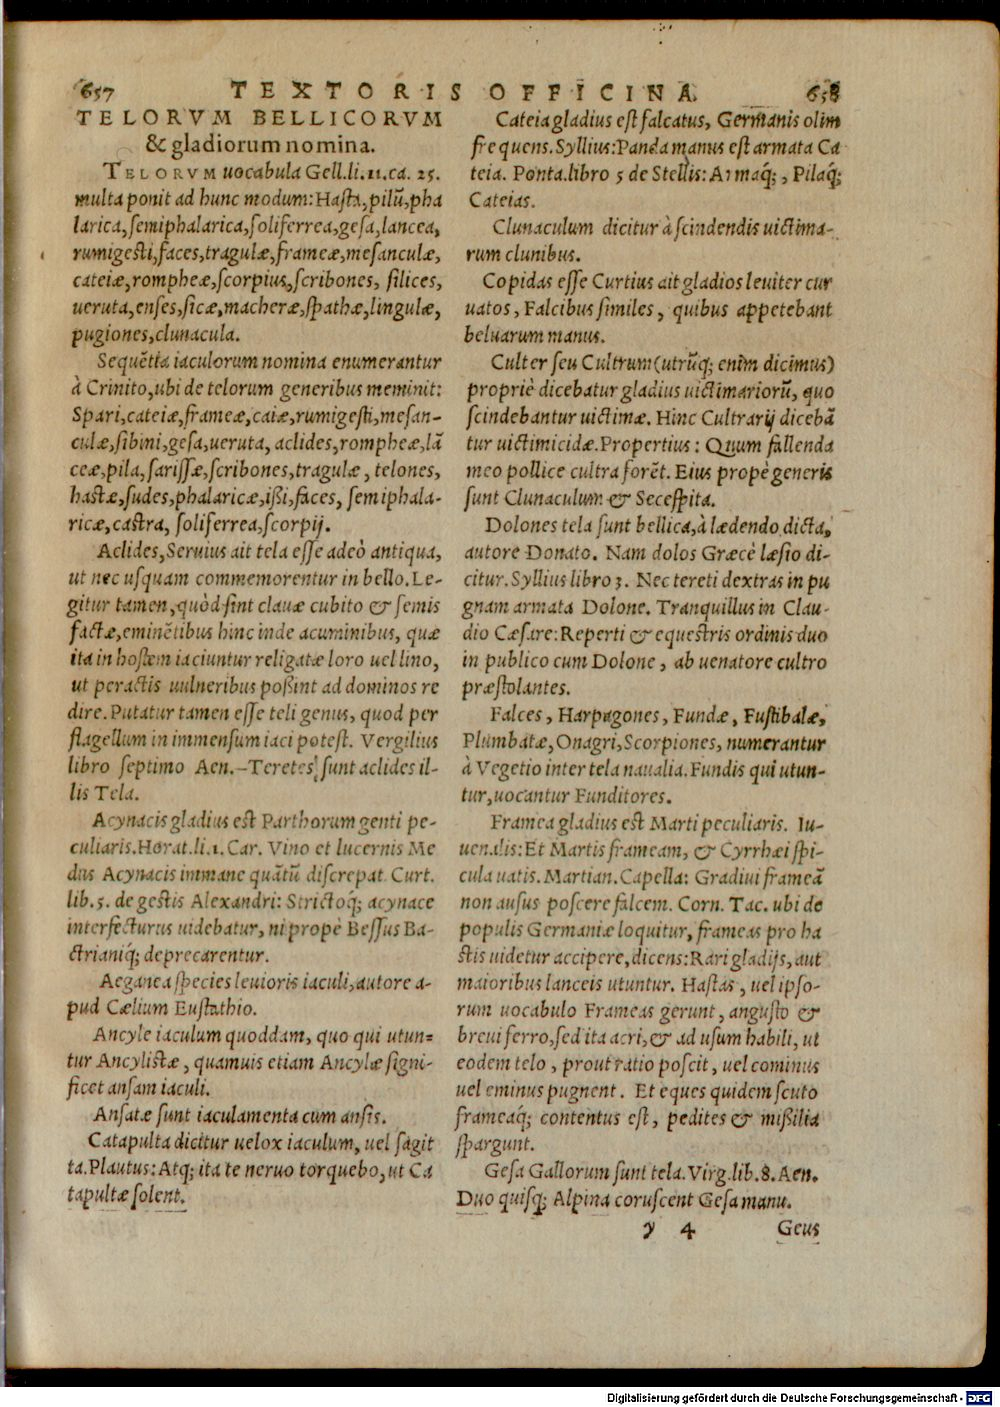 657 TEXTORIS OFFICINA 658
TELORVM BELLICORVM
& gladiorum nomina.
TELORVM uocabula Gell.li.11.ca. 25.
multa ponit ad hunc modum: Hasta, pilũ, pha
larica, semiphalarica, soliferrea, gesa, lancea,
rumigesti, faces, tragulæ, frameæ, mesanculæ,
cateiæ, rompheæ, scorpius, scribones, silices,
ueruta, enses, sicæ, macheræ, spathæ, lingulæ,
pugiones, clunacula.
Sequẽtia iaculorum nomina enumerantur
à Crinito, ubi de telorum generibus meminit:
Spari, cateiæ, frameæ, caiæ, rumigesti, mesan-
culæ, sibini, gesa, ueruta, aclides, rompheæ, lã
ceæ, pila, sarissæ, scribones, tragulæ, telones,
hastæ, sudes, phalaricæ, ißi, faces, semiphala-
ricæ, castra, soliferrea, scorpij.
Aclides, Seruius ait tela esse adeò antiqua,
ut nec usquam commemorentur in bello. Le-
gitur tamen, quòd sint clauæ cubito & semis
factæ, eminẽtibus hinc inde acuminibus, quæ
ita in hostem iaciuntur religatæ loro uel lino,
ut peractis uulneribus poßint ad dominos re
dire. Putatur tamen esse teli genus, quod per
flagellum in immensum iaci potest. Vergilius
libro septimo Aen.–Teretes sunt aclides il-
lis Tela.
Acynacis gladius est Parthorum genti pe-
culiaris. Horat.li.1. Car. Vino et lucernis Me
dus Acynacis immane quãtũ discrepat. Curt.
lib.5. de gestis Alexandri: Strictoq́; acynace
interfecturus uidebatur, ni propè Bessus Ba-
ctrianiq́; deprecarentur.
Aeganea species leuioris iaculi, autore a-
pud Cælium Eustathio.
Ancyle iaculum quoddam, quo qui utun=
tur Ancylistæ, quamuis etiam Ancylæ signi-
ficet ansam iaculi.
Ansatæ sunt iaculamenta cum ansis.
Catapulta dicitur uelox iaculum, uel sagit
ta. Plautus: Atq; ita te neruo torquebo, ut Ca
tapultæ solent.
Cateia gladius est falcatus, Germanis olim
frequens. Syllius: Panda manus est armata Ca
teia. Ponta.libro 5 de Stellis: Armaq́;, Pilaq́;
Cateias.
Clunaculum dicitur à scindendis uictima-
rum clunibus.
Copidas esse Curtius ait gladios leuiter cur
uatos, Falcibus similes, quibus appetebant
beluarum manus.
Culter seu Cultrum (utrũq; enim dicimus)
propriè dicebatur gladius uictimariorũ, quo
scindebantur uictimæ. Hinc Cultrarij dicebã
tur uictimicidæ. Propertius: Quum fallenda
meo pollice cultra forẽt. Eius propè generis
sunt Clunaculum & Secespita.
Dolones tela sunt bellica, à lædendo dicta,
autore Donato. Nam dolos Græcè læsio di-
citur. Syllius libro 3. Nec tereti dextras in pu
gnam armata Dolone. Tranquillus in Clau-
dio Cæsare: Reperti & equestris ordinis duo
in publico cum Dolone, ab uenatore cultro
præstolantes.
Falces, Harpagones, Fundæ, Fustibalæ,
Plumbatæ, Onagri, Scorpiones, numerantur
à Vegetio inter tela naualia. Fundis qui utun-
tur, uocantur Funditores.
Framea gladius est Marti peculiaris. Iu-
uenalis: Et Martis frameam, & Cyrrhæi spi-
cula uatis. Martian. Capella: Gradiui frameã
non ausus poscere falcem. Corn. Tac. ubi de
populis Germaniæ loquitur, frameas pro ha
stis uidetur accipere, dicens: Rari gladijs, aut
maioribus lanceis utuntur. Hastas, uel ipso-
rum uocabulo Frameas gerunt, angusto &
breui ferro, sed ita acri, & ad usum habili, ut
eodem telo, prout ratio poscit, uel cominus
uel eminus pugnent. Et eques quidem scuto
frameaq́; contentus est, pedites & mißilia
spargunt.
Gesa Gallorum sunt tela. Virg.lib.8. Aen.
Duo quisq; Alpina coruscent Gesa manu.
y 4 Geus
Digitalisierung gefördert durch die Deutsche Forschungsgemeinschaft - DFG